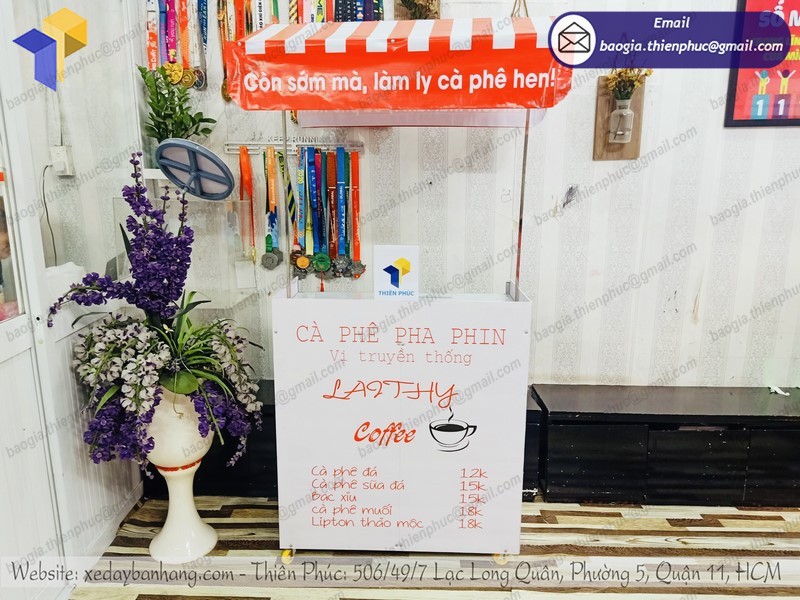 Email
baogia.thienphuc@gmail.com
Còn sớm mà, làm ly cà phê hen!
THIÊN PHÚC
CÀ PHÊ PHA PHIN
Vị truyền thống
LAITHY
Coffee
Cà phê đá 12k
Cà phê sữa đá 15k
Bạc xỉu 15k
cà phê muối 18k
Lipton thảo mộc 18k
Website: xedaybanhang.com - Thiên Phúc: 506/49/7 Lạc Long Quân, Phường 5, Quận 11, HCM